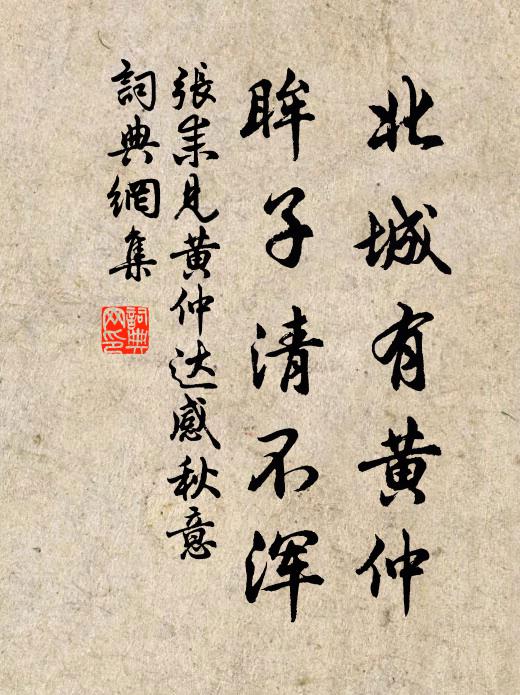 北城有黄仲
眸子清不浑
張耒見黄仲达感秋意
詞典網集
詞典网印